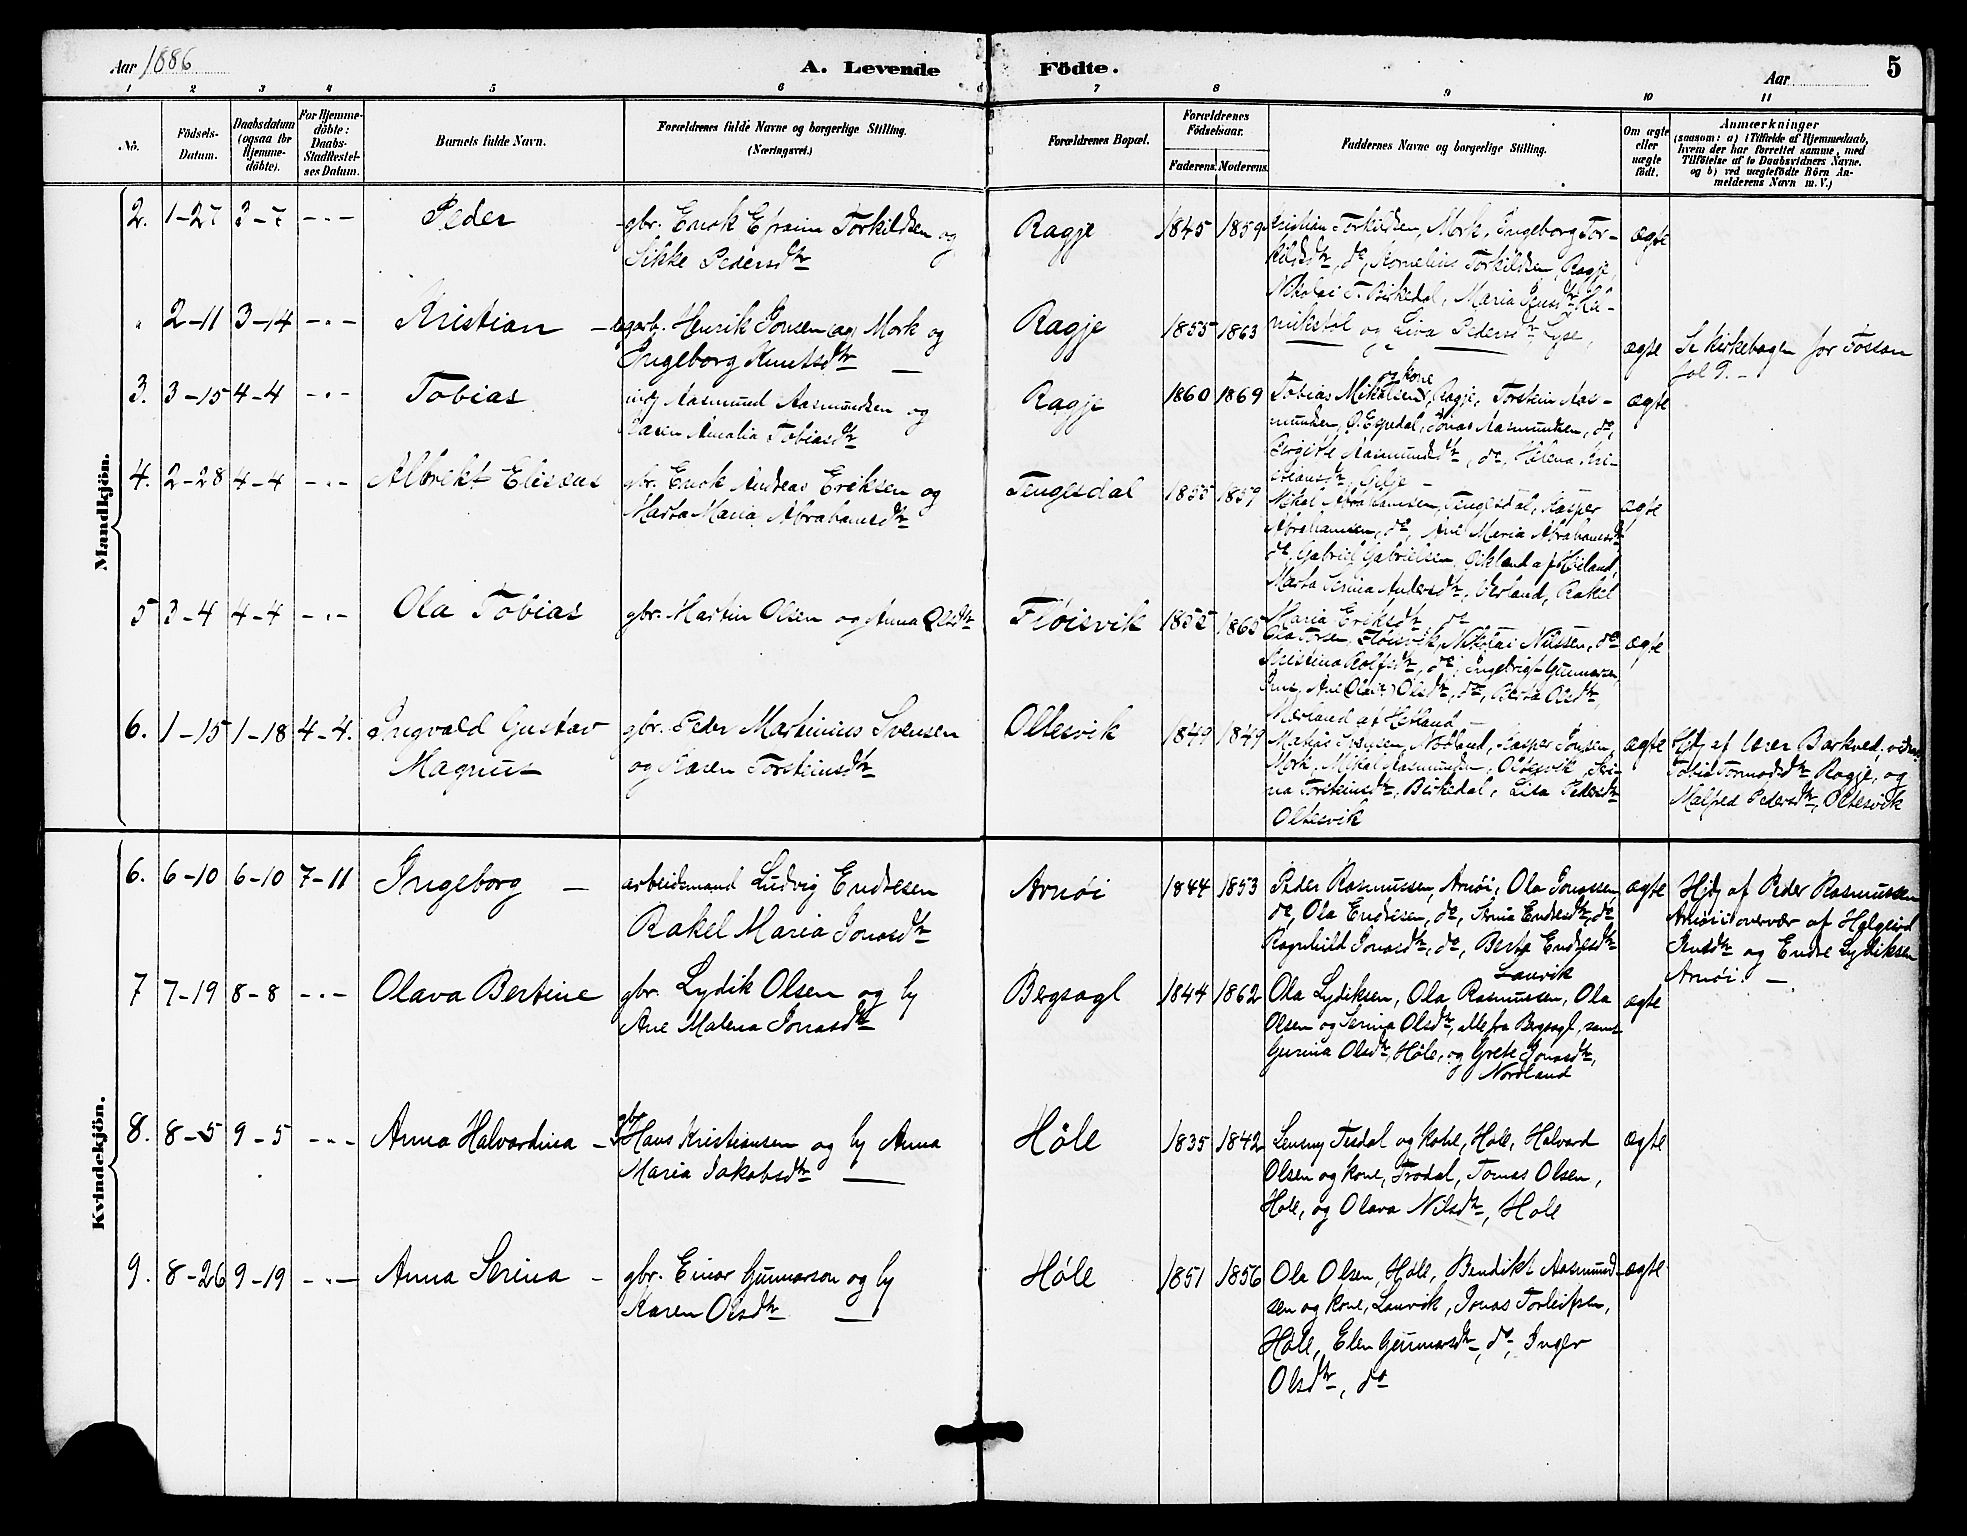 Aar 1886
A. Levende Födte.
Aar
5
1 2 3 4 5 6 7 8 9 10 11
No.
Födsels-
Datum.
Daabsdatum
(ogsaa for
Hjemme-
döbte).
For Hjemme-
döbte:
Daabs-
Stadfæstel-
ses Datum.
Barnets fulde Navn.
Forældrenes fulde Navne og borgerlige Stilling.
(Næringsvei.)
Forældrenes Bopæl.
Forældrenes
Födselsaar.
Faderens. Moderens.
Faddernes Navne og borgerlige Stilling.
Om ægte
eller
uægte
födt.
Anmærkninger
(saasom: a) i Tilfælde af Hjemmedaab,
hvem der har forrettet samme, med
Tilföielse af to Daabsvidners Navne.
og b) ved uægtefödte Börn An-
melderens Navn m. V.)
Mandkjön.
2. 1-27 - " - Peder
gbr. Enok Efraim Torkildsen og
Sikke Pedersdtr
Ragje 1845 1859
Kristian Torkildsen, Mork, Ingeborg Tor-
kildsdtr, do, Kornelius Torkildsen, Ragje,
Nikolai T. Birkedal, Maria
og Liva Pedersdtr Lyse,
ægte
" 2-11 3-14 - " - Kristian -
Henrik Jonsen af Mork og
Ingeborg Knutsdtr -
Ragje 1855 1863
ægte
Se kirkebogen for Fossan
fol 9. -
3. 3-15 4-4 - " - Tobias
indj Aasmund Aasmundsen og
Karen Amalia Tobiasdtr
Ragje 1860 1869
og kone
Tobias Mikalsen, Ragje, Torstein Aas-
mundsen, Ø. Espedal, Jonas Aasmundsen, do,
Birgitte Aasmundsdtr, do, Helena Kri-
stiansdtr, Selje -
ægte
4. 2-28 4-4 - " - Albrekt Elisæus
gbr. Enok Andreas Eriksen og
Marta Maria Abrahamsdtr
Tengesdal 1855 1859
Mikal Abrahamsen, Tengesdal, Kasper
Abrahamsen, do, Ane Maria Abrahamsdtr
do, Gabriel Gabrielsen, af Hetland,
Marta Serina Andersdtr, Rakel
Maria Eriksdtr, do
ægte
5 3-4 4-4 - " - Ola Tobias
gbr. Martin Olsen og Anna Olsdtr
Fløisvik 1855 1865
Ola Torsen, Fløisvik, Nikolai Nilssen, do
Kristina Rolfsdtr, do, Ingebrigt Gunnarsen,
Ims, Ane Olsdtr, do, Berta Olsdtr,
Mæland af Hetland -
ægte
6. 1-15 1-18 4-4. Ingvald Gustav
Magnus
gbr. Peder Martinius Svensen
og Karen Torsteinsdtr
Oltesvik 1849 1849
Matias Svensen, Nodland, Kasper Jonsen,
Mork, Mikal Rasmussen, Oltesvik, Seri-
na Torsteinsdtr, Birkedal, Lisa Pedersdtr
Oltesvik
ægte
Hdj af lærer Barkved, vidner
Tormodsdtr Ragje, og
Malfred Pedersdtr, Oltesvik
Kvindekjön.
6. 6-10 6-10 7-11 Ingeborg -
arbeidsmand Ludvig Endresen
Rakel Maria Jonasdtr
Arnøi 1844 1853
Peder Rasmussen, Arnøi, Ola Jonassen
do, Ola Endresen, do, Anna Endresdtr, do
Ragnhild Jonasdtr, do, Berte Endresdtr
Lauvik
ægte
Hjdj af Peder Rasmussen
Arnøi i overvær af Helgeivd
Jensdtr og Endre Lydiksen
Arnøi. -
7 7-19 8-8 - " - Olava Bertine
gbr. Lydik Olsen og hu
Ane Malena Jonasdtr
Bergsagl 1844 1862
Ola Lydiksen, Ola Rasmussen, Ola
Olsen og Serina Olsdtr, alle fra Bergsagl, samt
Gurina Olsdtr, Høle, og Grete Jonasdtr,
Nordland
ægte
8. 8-5 9-5 - " - Anna Halvardina -
gbr
Hans Kristiansen og hu Anna
Maria Jakobsdtr -
Høle 1835 1842
Tesdal og kone, Høle, Halvard
Olsen og kone, Trodal, Tomas Olsen,
Høle, og Olava Nilsdtr, Høle
ægte
9. 8-26 9-19 - " - Anna Serina -
gbr. Einar Gunnarson og hu
Karen Olsdtr -
Høle 1851 1856
Ola Olsen, Høle, Bendikt Aasmund-
sen og kone, Lauvik, Jonas Torleifsen,
Høle, Elen Gunnarsdtr, do, Inger
Olsdtr, do
ægte